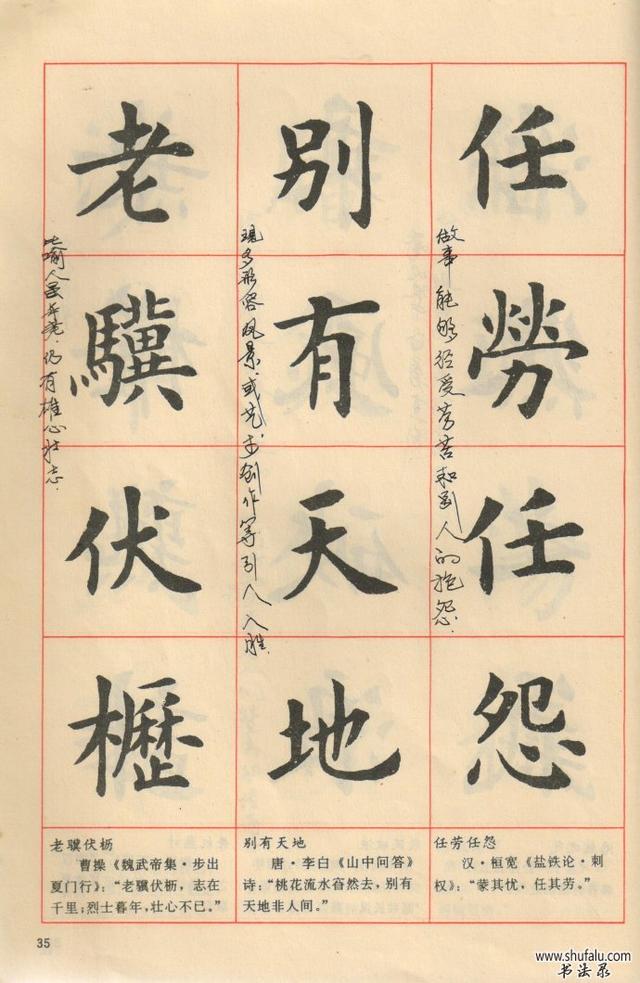 任勞任怨
做事能够经受劳苦和别人的抱怨.
別有天地
现多形容风景.或艺术创作等引人入胜.
老驥伏櫪
比喻人虽年老.仍有雄心壮志.
任劳任怨
汉·桓宽《盐铁论·刺
权》：“蒙其忧，任其劳。”
别有天地
唐·李白《山中问答》
诗：“桃花流水窅然去，别有
天地非人间。”
老骥伏枥
曹操《魏武帝集·步出
夏门行》：“老骥伏枥，志在
千里；烈士暮年，壮心不已。”
35
www.shufalu.com
书法录